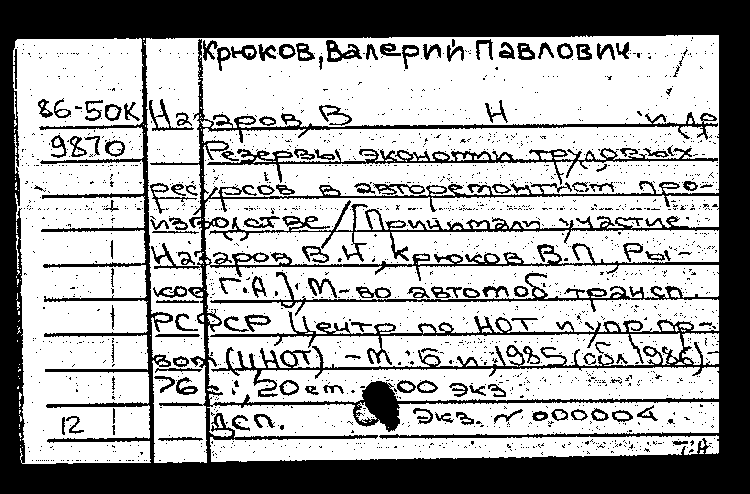 Крюков, Валерий Павлович.
86-50К Назаров, В Н и др
9870 Резервы экономии трудовых
ресурсов в авторемонтном про-
изводстве / [Принимали участие:
Назаров В.Н., Крюков В.П., Ры-
ков Г.А.]; М-во автомоб. трансп.
РСФСР, Центр по НОТ и упр пр-
вом (ЦНОТ). - М.: Б. и, 1985 (обл 1986) -
76 с.; 20 см. 00 экз
12 ДСП. Экз. № 000004.
Т.А